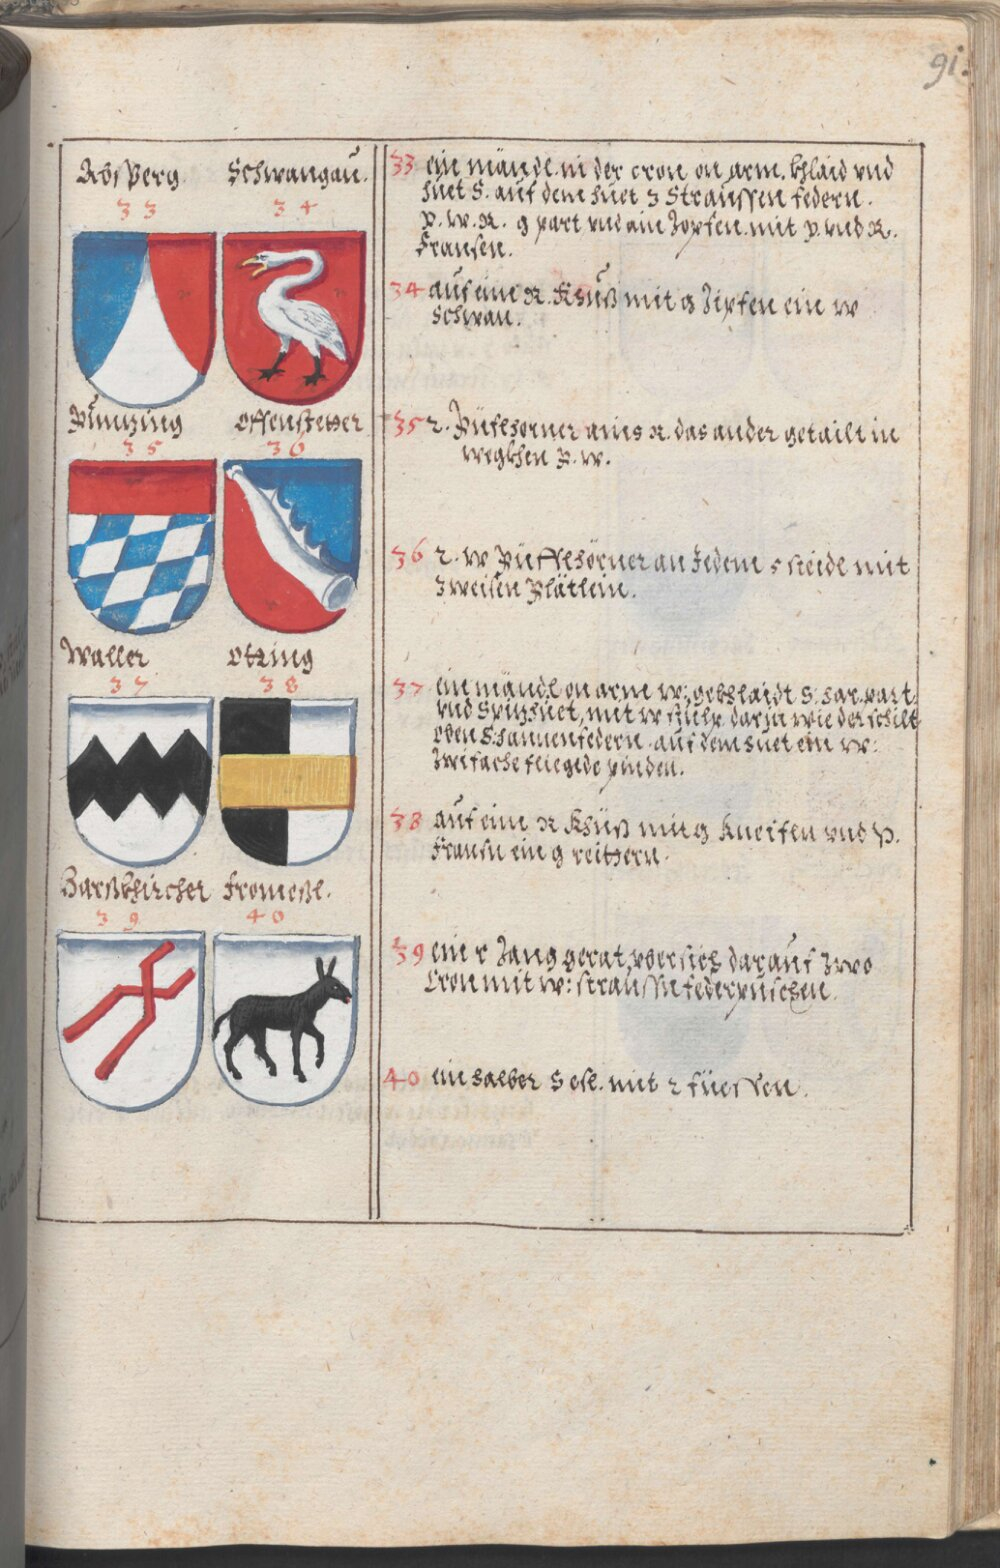 91.
AbsPerg Schwangaŭ.
33 34
Pŭntzing Offensteter
35 36
Waller Otting
37 38
Harßkhircher Fromeßl.
39 40
33 ein mändl in der cron on arm. khlaid vnd
huet S. auf dem huet 3 Straussen federn.
P. W. R. g part vnd ain Zopfen mit P vnd R.
fransen.
34 auf eim R. Khüß mit g Zipfen ein W
Schwan.
35 2. Püfelhorner ains R. das ander getailt in
weghen P. W.
36 2. W Püfflhörner an Jedem 5 steidl mit
zweisen Plätlein.
37 ein mändl on arm W: gekhlaidt S: har. part
vnd Spizhuet, mit W stülp darin wie der schilt
oben S hannenfedern. auf dem huet ein W:
Zwifache fliegede pinden.
38 auf eim R Khüß mit g kneifen vnd P.
fransn ein g reitzern.
39 ein r Zang gerat vbersich darauf zwo
Cron mit W: straussn federpuschen.
40 ein halber S esl. mit 2 füessen.